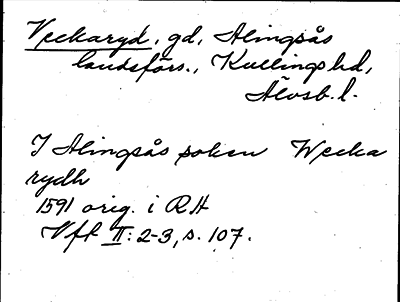 Veckaryd, gd, Alingsås
landsförs., Kullings hd,
Älvsb. l.
I Alingsås soken Wecka
rydh
1591 orig. i RA
Vft II: 2-3, s. 107.